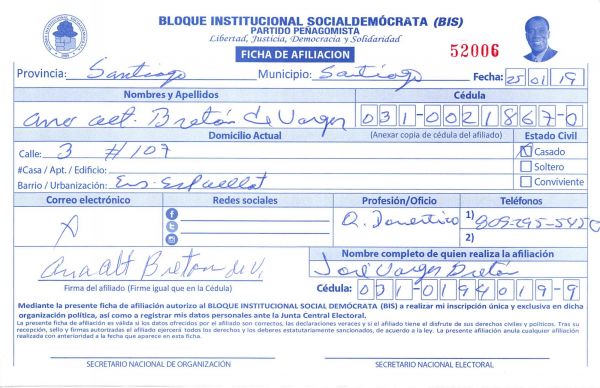 BLOQUE INSTITUCIONAL SOCIALDEMÓCRATA (BIS)
PARTIDO PEÑAGOMISTA
Libertad, Justicia, Democracia y Solidaridad
FICHA DE AFILIACION
52006
Provincia: Santiago Municipio: Santiago Fecha: 25 01 19
Nombres y Apellidos Cédula
Ana alt. Bretón de Vargas 031-0021867-0
Domicilio Actual (Anexar copia de cédula del afiliado) Estado Civil
Calle: 3 #107 Casado
#Casa / Apt. / Edificio: Soltero
Barrio / Urbanización: Ens. Espaillat Conviviente
Correo electrónico Redes sociales Profesión/Oficio Teléfonos
Q. Domestico 1) 809-295-5450
2)
Ana Alt Breton de V. Nombre completo de quien realiza la afiliación
José Vargas Bretón
Firma del afiliado (Firme igual que en la Cédula) Cédula: 031-0194019-9
Mediante la presente ficha de afiliación autorizo al BLOQUE INSTITUCIONAL SOCIAL DEMÓCRATA (BIS) a realizar mi inscripción única y exclusiva en dicha
organización política, así como a registrar mis datos personales ante la Junta Central Electoral.
La presente ficha de afiliación es válida si los datos ofrecidos por el afiliado son correctos, las declaraciones veraces y si el afiliado tiene el disfrute de sus derechos civiles y políticos. Tras su
recepción, sello y firmas autorizadas el afiliado ejercerá todos los derechos y los deberes estatutariamente sancionados, de acuerdo a la ley. La presente afiliación anula cualquier afiliación
realizada con anterioridad a la fecha que aparece en esta ficha.
SECRETARIO NACIONAL DE ORGANIZACIÓN SECRETARIO NACIONAL ELECTORAL